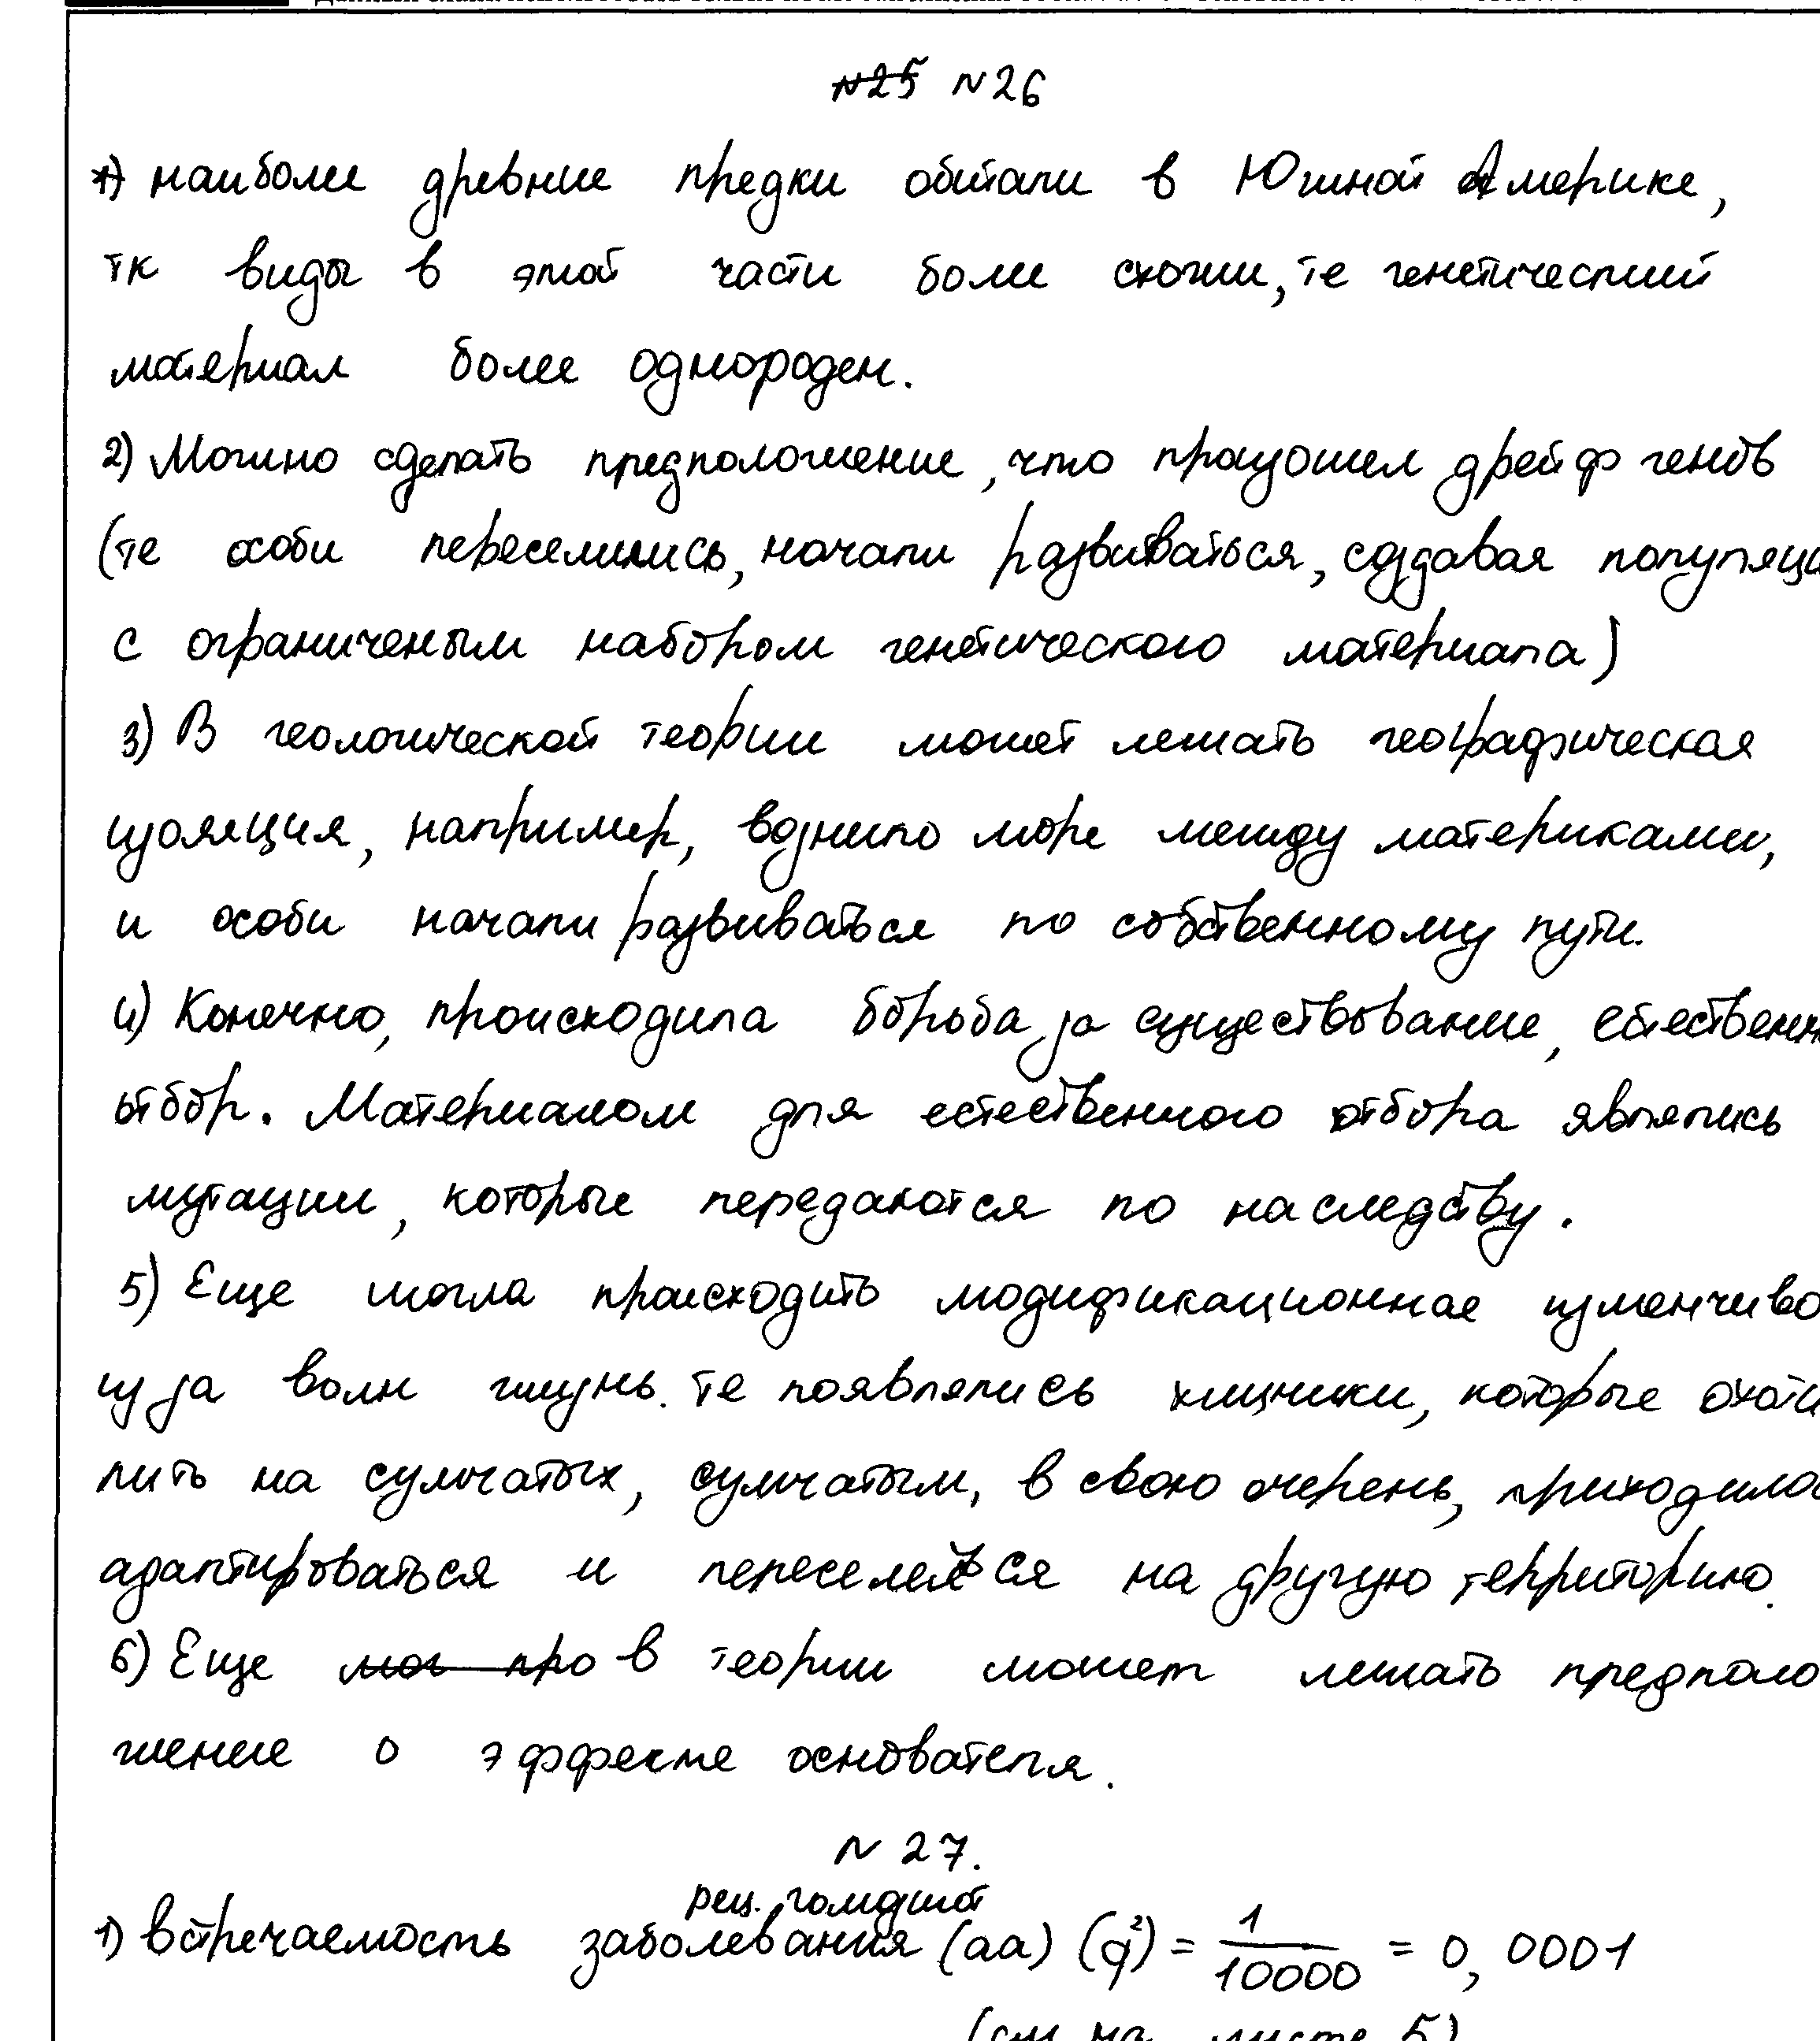 №25 №26
1) наиболее древние предки обитали в Южной Америке,
тк виды в этой части более схожи, те генетический
материал более однороден.
2) Можно сделать предположение, что произошел дрейф генов
(те особи переселились, начали развиваться, создавая популяци
с ограниченым набором генетического материала)
3) В геологической теории может лежать географическая
изоляция, например, возникло море между материками,
и особи начали развиваться по собственному пути.
4) Конечно, происходила борьба за существование, естественн
отбор. Материалом для естественного отбора являлись
мутации, которые передаются по наследству.
5) Еще могла происходить модификационная изменчиво
из за волн жизнь. те появлялись хищники, которые охоти
лить на сумчатых, сумчатым, в свою очерень, приходилос
адаптироваться и переселятся на другую территорию.
6) Еще мог про в теории может лежать предполо
жение о эффекте основателя.
№ 27.
рец. гомозигот
1) встречаемость заболевания (aa) (q²) = 1/10000 = 0,0001
(см на листе 5)